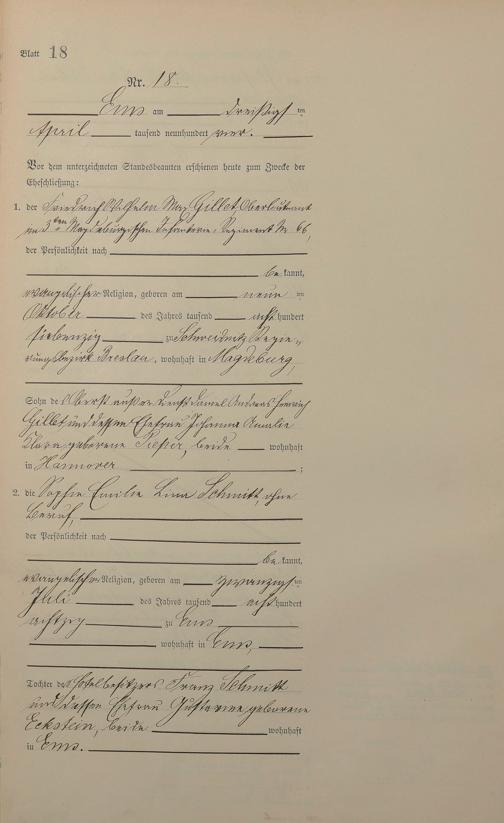 Blatt 18
Nr. 18.
Ems am dreißigsten
April tausend neunhundert vier.
Vor dem unterzeichneten Standesbeamten erschienen heute zum Zwecke der
Eheschließung:
1. der Friedrich Wilhelm Max Gillet, Oberleutnant
im 3ten Magdeburgischen Infanterie-Regiment Nr. 66,
der Persönlichkeit nach
bekannt,
evangelischer Religion, geboren am neunten
Oktober des Jahres tausend achthundert
siebenzig zu Schweidnitz Regie-
rungsbezirk Breslau, wohnhaft in Magdeburg,
Sohn des Oberst außer Dienst Daniel Andreas Heinrich
Gillet und dessen Ehefrau Johanna Amalie
Clara geborene Pieper, beide wohnhaft
in Hannover ;
2. die Sophie Emilie Lina Schmitt, ohne
Beruf,
der Persönlichkeit nach
bekannt,
evangelischer Religion, geboren am zwanzigsten
Juli des Jahres tausend achthundert
achtzig zu Ems
wohnhaft in Ems,
Tochter des Hotelbesitzers Franz Schmitt
und dessen Ehefrau geborene
Eckstein, beide wohnhaft
in Ems.